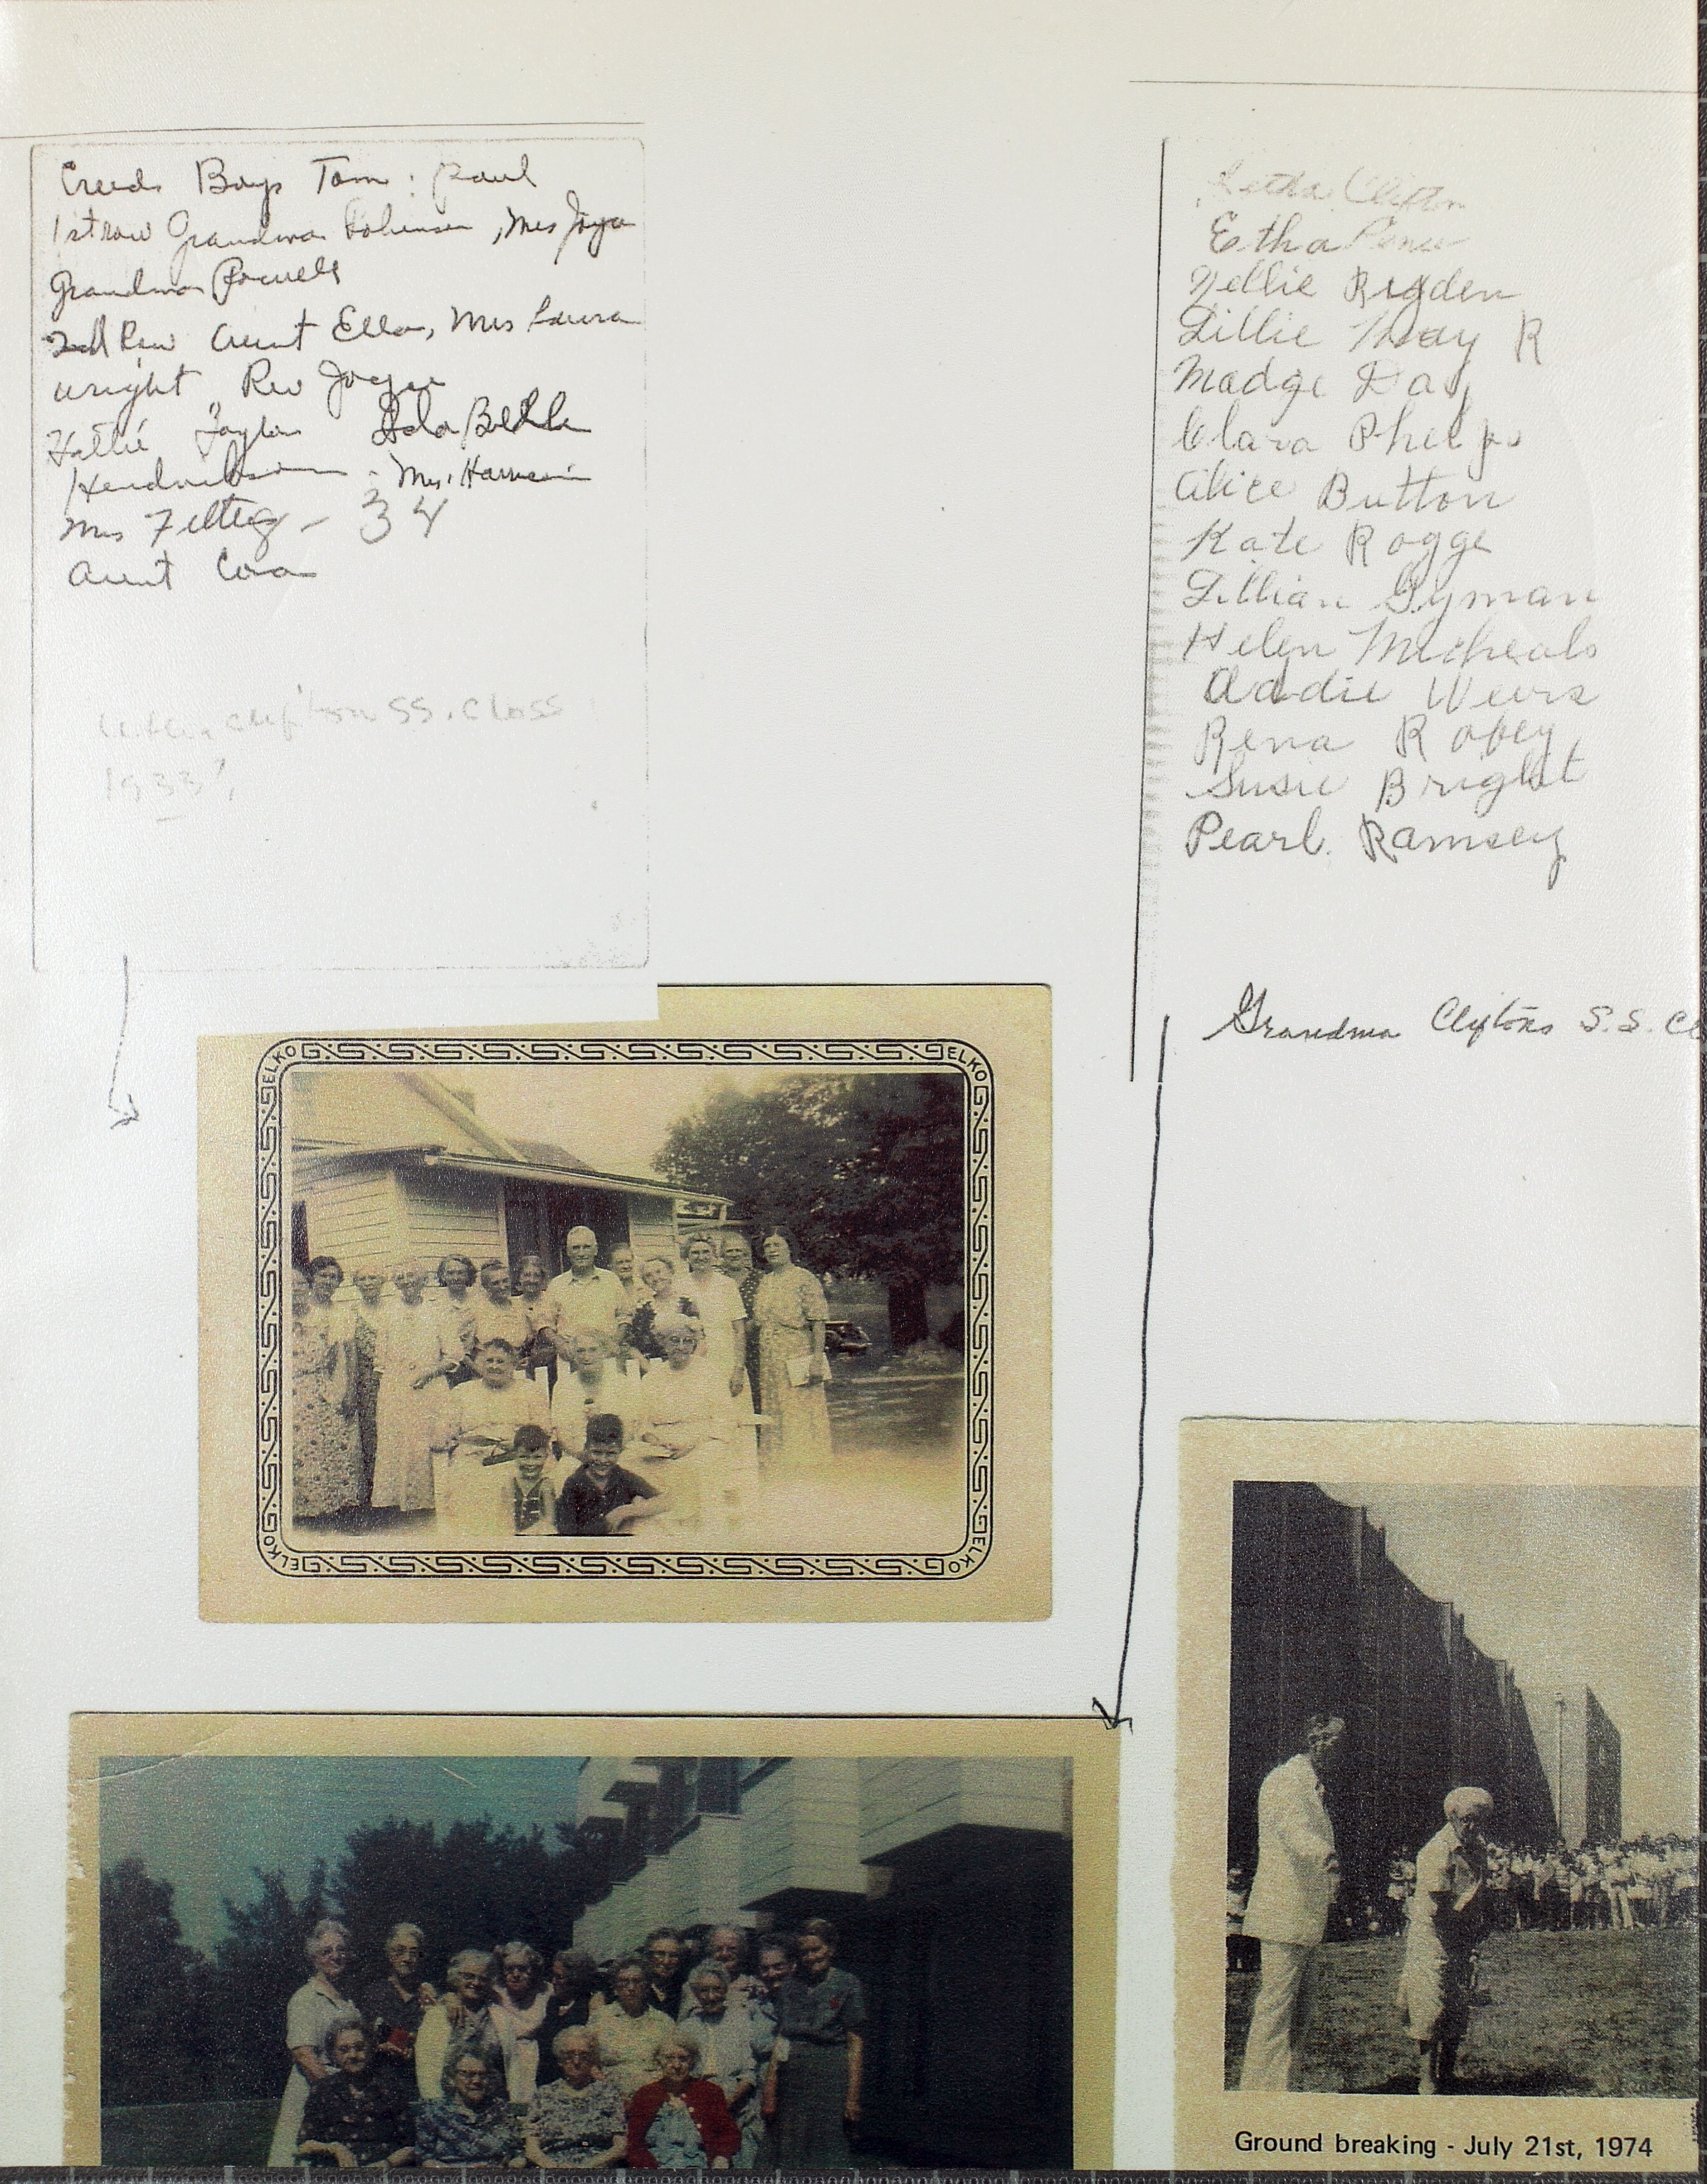 Creeds Boys Tom : Paul
1st row Grandma Robinson, Mrs Joyce
Grandma Powell
2nd Row Aunt Ella, Mrs Laura
wright Rev Joyce
Hattie Taylor
Mrs. Harrison
Mrs
34
Aunt Cora
Clifton SS. Class
1933?
Letha Clifton
Etha
Nellie Rigden
Lillie May R
Madge Day
Clara Phelps
Alice Button
Kate Rogge
Lillian Gyman
Helen Micheals
Addie Weirs
Rena Robey
Susie Bright
Pearl Ramsey
Grandma Cliftons S.S. Cl
ELKO
ELKO
ELKO
ELKO
ELKO
ELKO
ELKO
ELKO
Ground breaking - July 21st, 1974